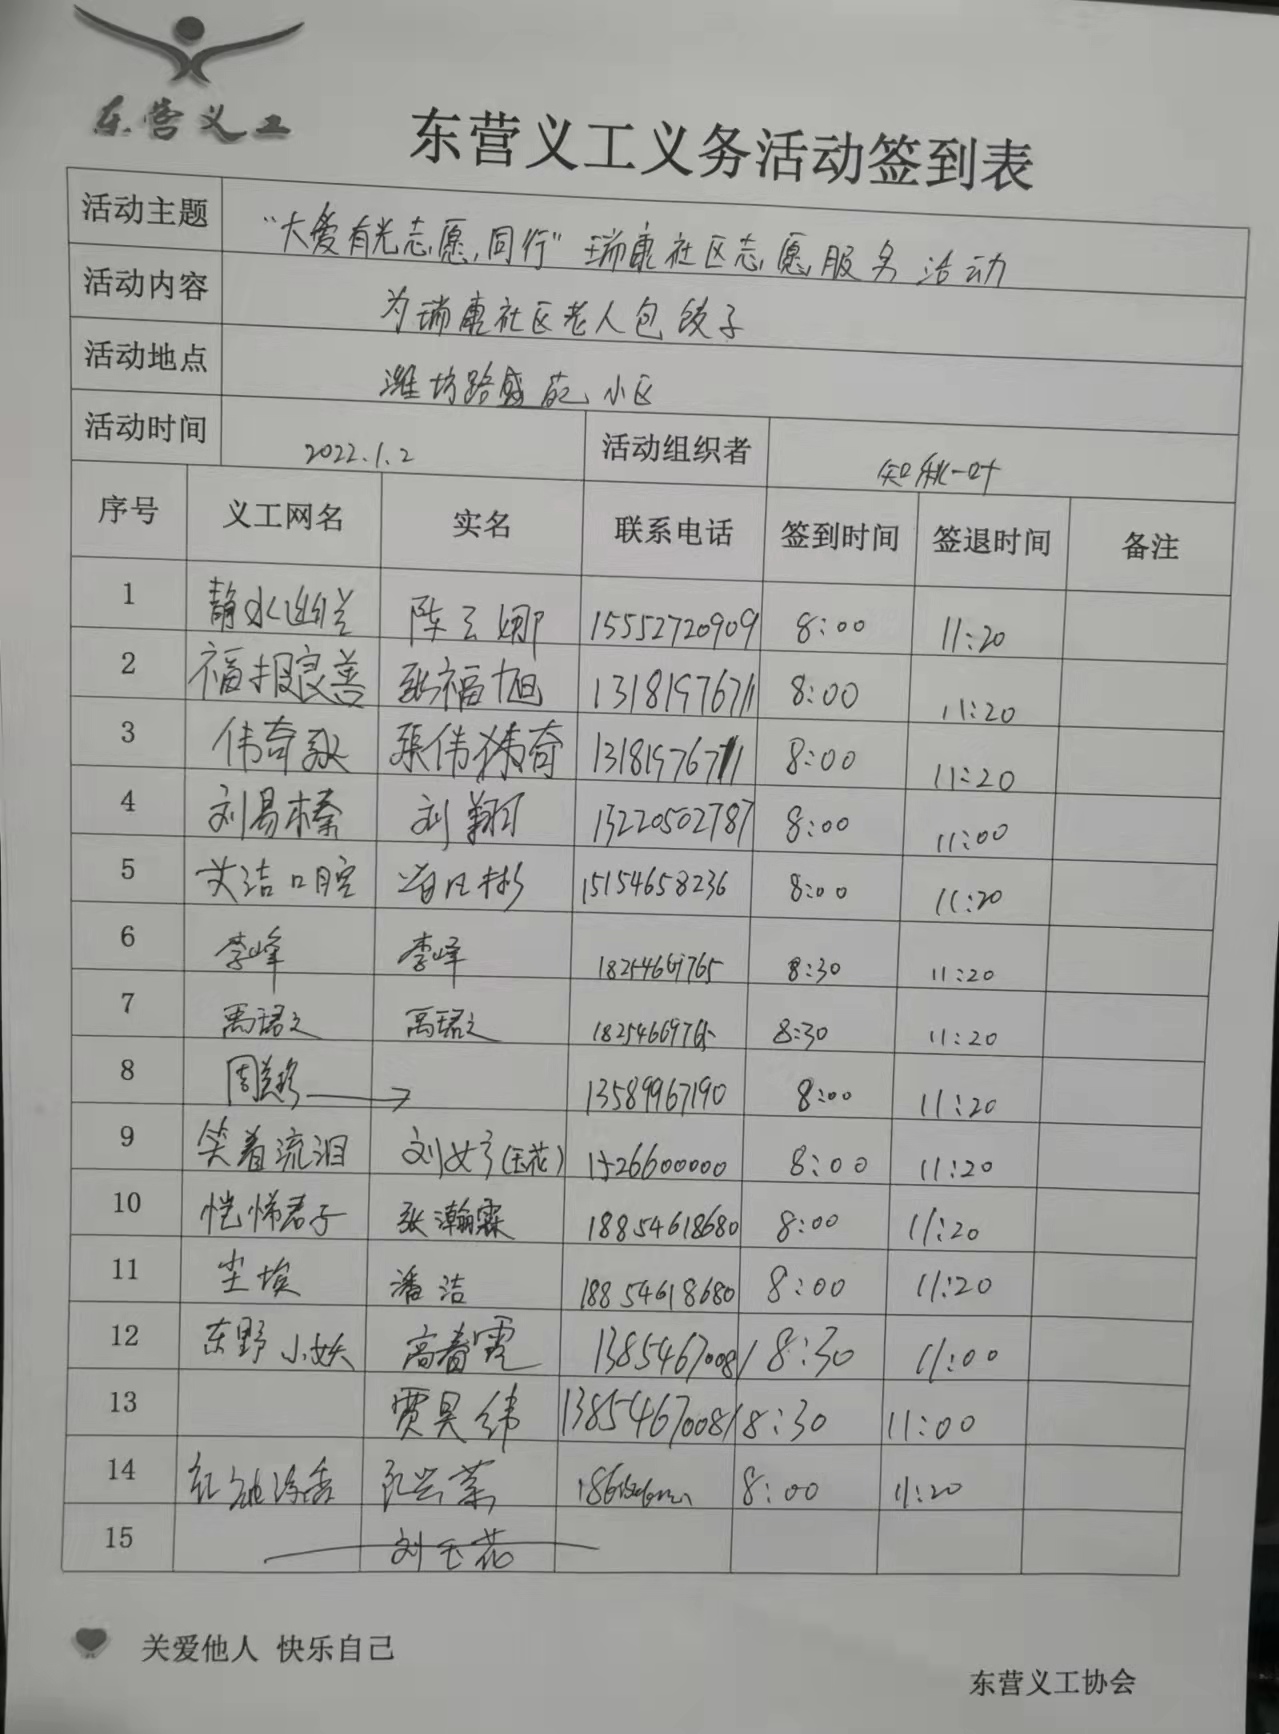 东营义工
东营义工义务活动签到表
活动主题 “大爱有光志愿同行”瑞康社区志愿服务活动
活动内容 为瑞康社区老人包饺子
活动地点 潍坊路盛苑小区
活动时间 2022.1.2 活动组织者 知秋一叶
序号 义工网名 实名 联系电话 签到时间 签退时间 备注
1 静水幽兰 陈云娜 15552720909 8:00 11:20
2 福报良善 张福旭 13181976711 8:00 11:20
3 伟奇 张伟 奇 13181976711 8:00 11:20
4 刘易榛 刘翔 13220502787 8:00 11:00
5 洁口腔 15154658236 8:00 11:20
6 李峰 李峰 8:30 11:20
7 禹珺之 禹珺之 8:30 11:20
8 周美珍 13589967190 8:00 11:20
9 笑着流泪 刘女子(玉花) 8:00 11:20
10 恺悌君子 张瀚霖 18854618680 8:00 11:20
11 尘埃 潘洁 18854618680 8:00 11:20
12 东野小妖 高春霞 13854670081 8:30 11:00
13 贾昊纬 13854670081 8:30 11:00
14 8:00 11:20
15 刘玉花
关爱他人 快乐自己
东营义工协会